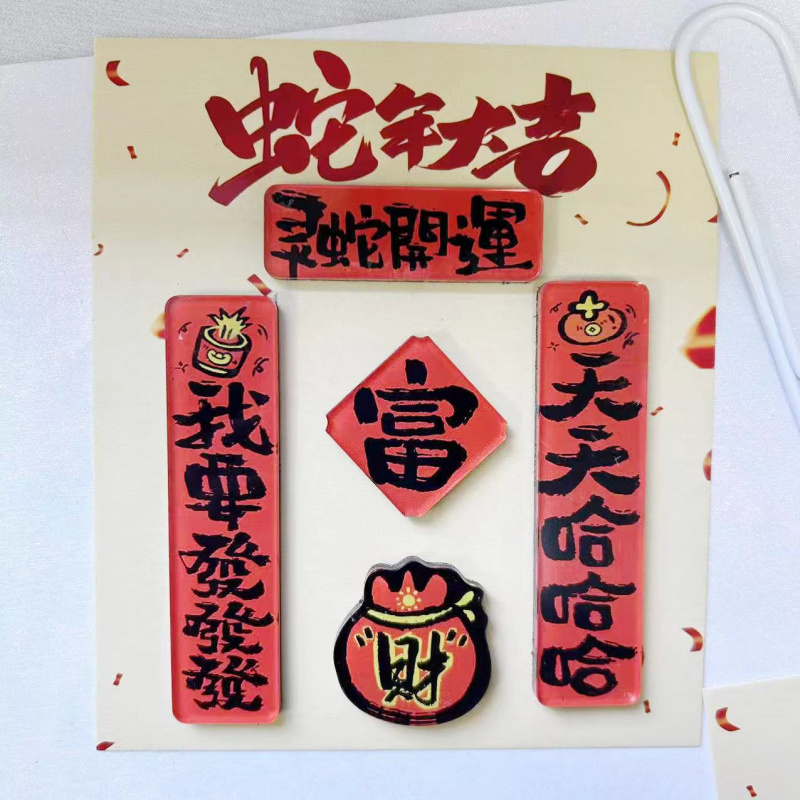 蛇年大吉
灵蛇開運
我要發發發
富
天天哈哈哈
"財"